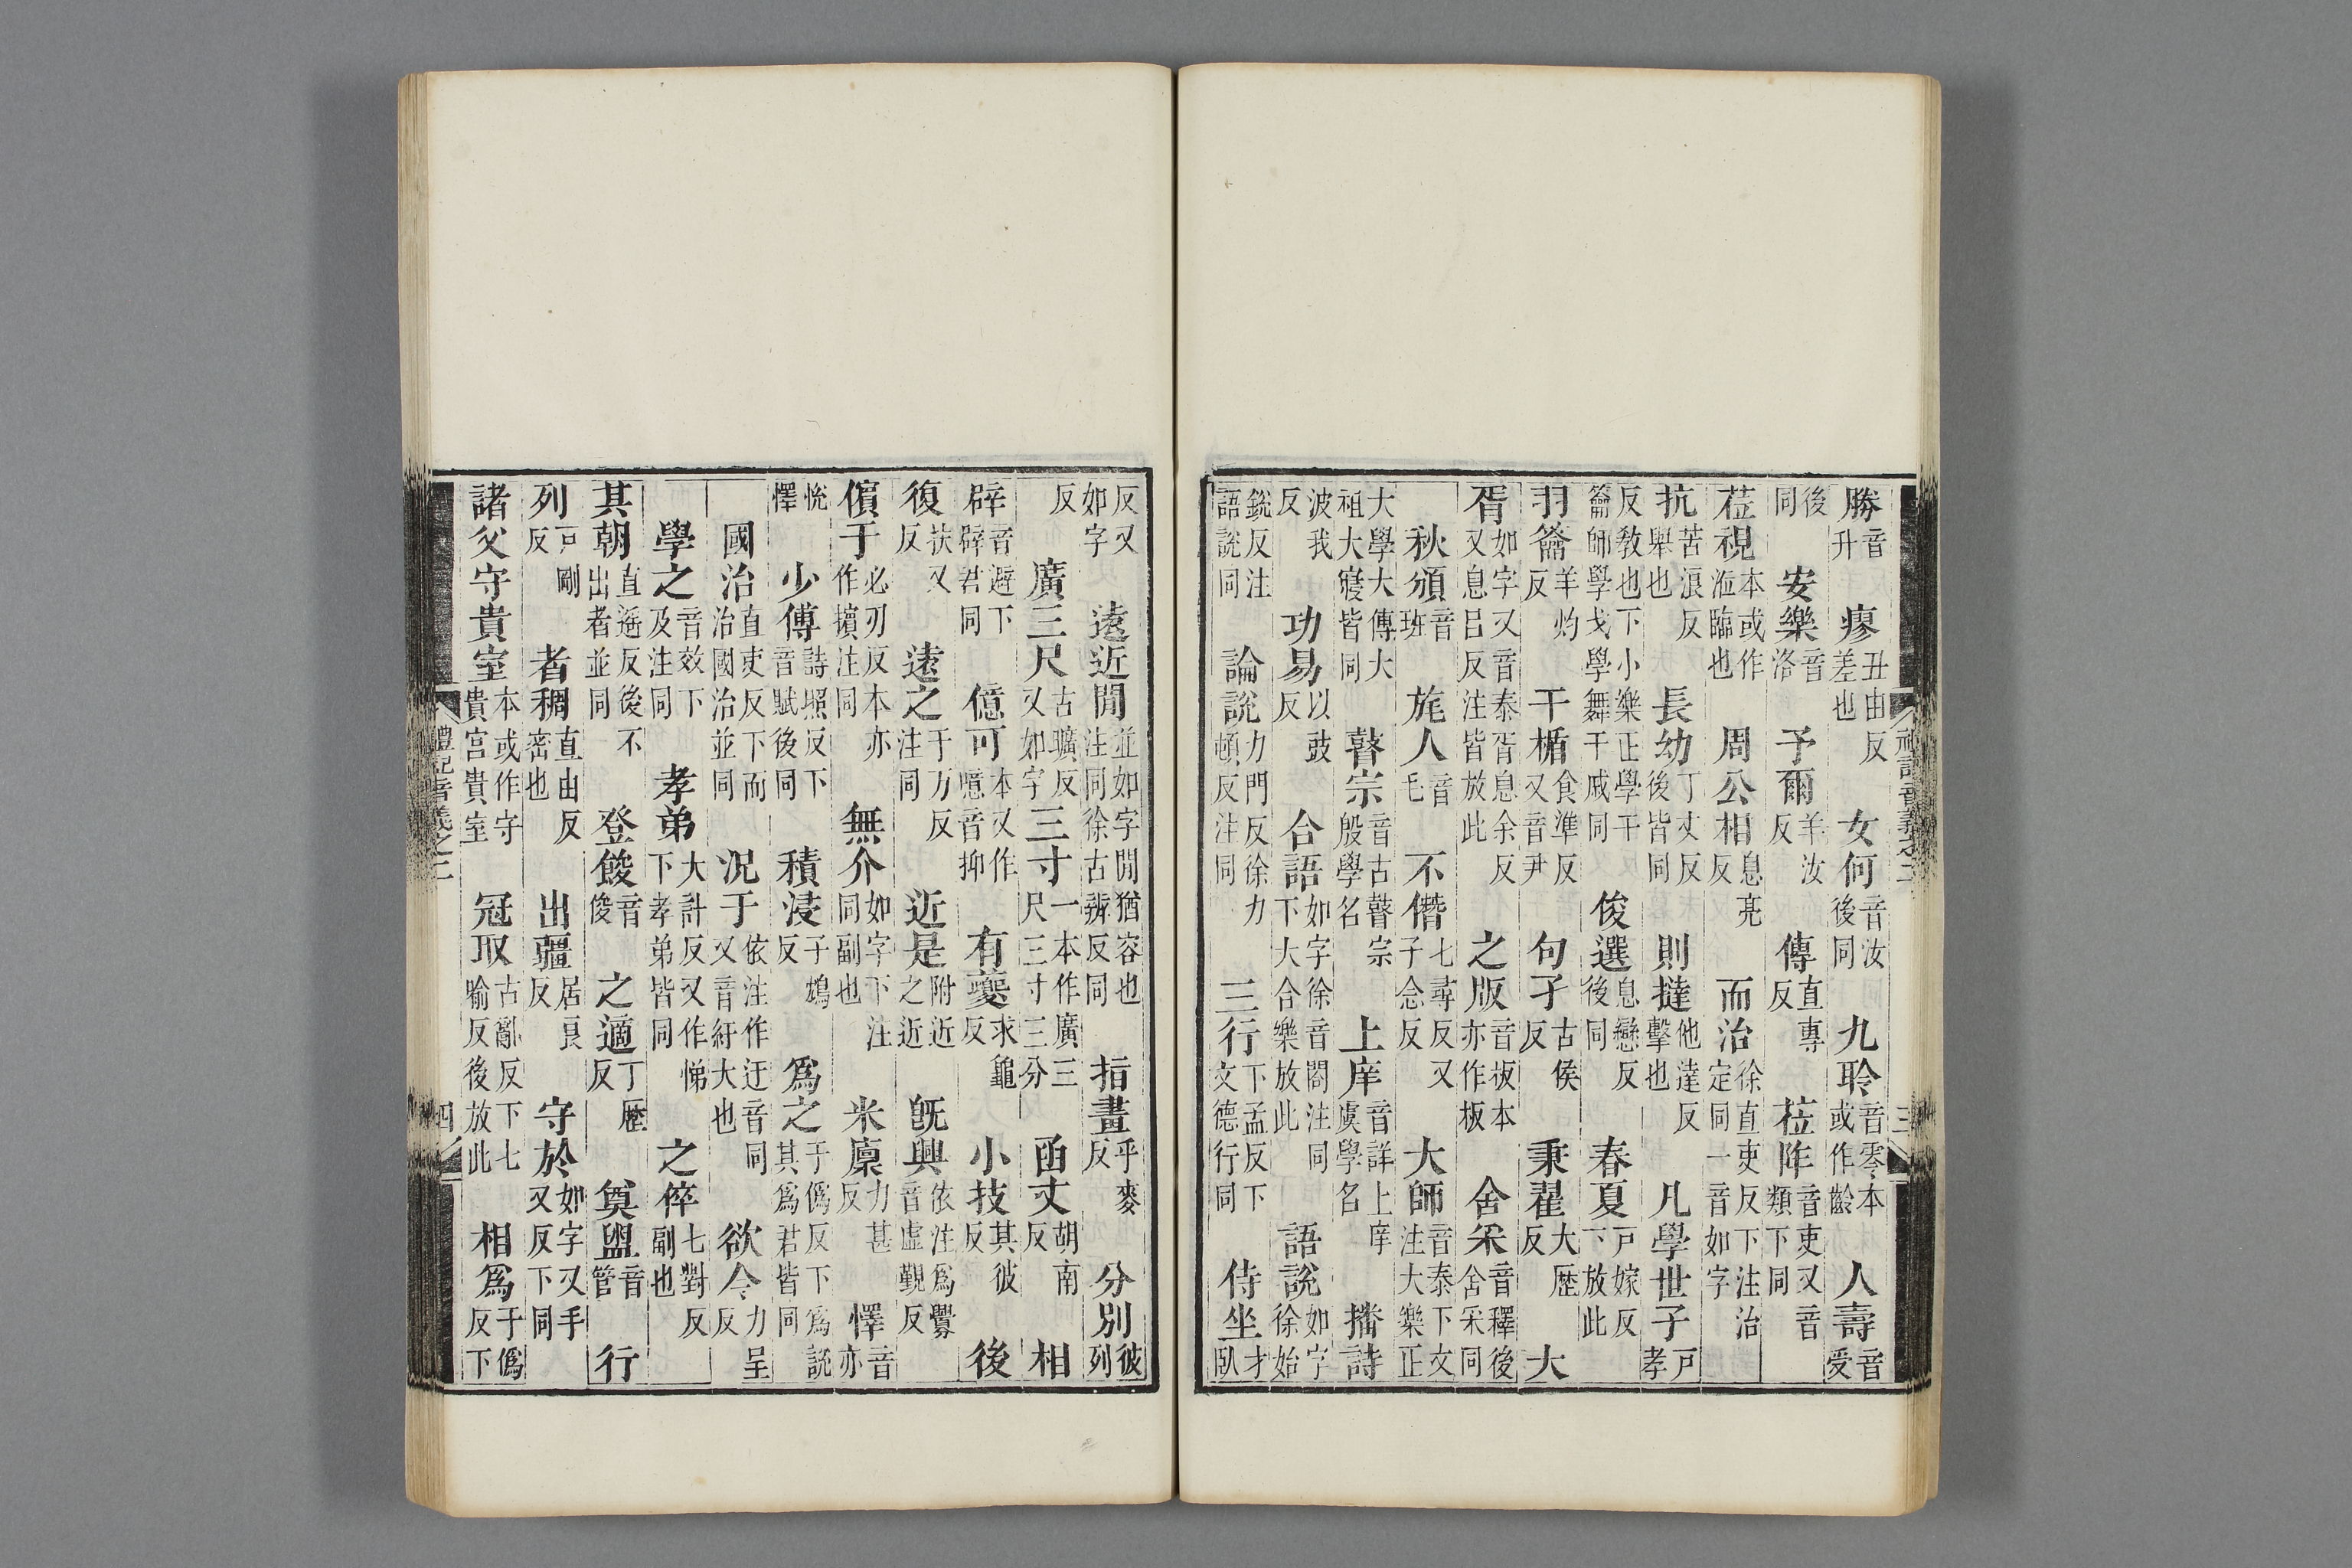 禮記音義之二 三
勝音升 瘳丑由反差也 女何音汝後同 九聆音零本或作齡 人壽音受
後同 安樂音洛 予爾羊汝反 傳直專反 莅阼音吏又音類下同
莅視本或作涖臨也 周公相息亮反 而治徐直吏反下注治定同一音如字
抗苦浪反舉也 長幼丁丈反後皆同 則撻他達反擊也 凡學世子戶孝
反教也下小樂正學干籥師學戈學舞干戚同 俊選息戀反後同 春夏戶嫁反下放此
羽籥羊灼反 干楯食準反又音尹 句孑古侯反 秉翟大歷反 大
胥如字又音泰胥息余反又息呂反注皆放此 之版音板本亦作板 舍采音釋後舍采同
秋頒音班 旄人音毛 不僭七尋反又子念反 大師音泰下文注大樂正
大學大傅大祖大寢皆同 瞽宗音古瞽宗殷學名 上庠音詳上庠虞學名 播詩
波我反 功易以豉反 合語如字徐音閤注同下大合樂放此 語說如字徐始
銳反注語說同 論說力門反徐力頓反注同 三行下孟反下文德行同 侍坐才臥
反又如字 遠近閒並如字閒猶容也注同徐古辨反同 指畫乎麥反 分別彼列
反 廣三尺古曠反又如字 三寸一本作廣三尺三寸三分 函丈胡南反 相
辟音避下辟君同 億可本又作噫音抑 有夔求龜反 小技其彼反 後
復扶又反 遠之于万反注同 近是附近之近 旣興依注爲釁音虛覲反
儐于必刃反本亦作擯注同 無介如字下注同副也 米廩力甚反 懌音亦
恱懌 少傅詩照反下音賦後同 積浸子鴆反 爲之于僞反下爲説其爲君皆同
國治直吏反下而治國治並同 况于依注作迂音同又音紆大也 欲令力呈反
學之音效下及注同 孝弟大計反又作悌下孝弟皆同 之倅七對反副也
其朝直遥反後不出者並同 登餕音俊 之適丁歷反 奠盥音管 行
列戶剛反 者稠直由反密也 出疆居良反 守於如字又手又反下同
諸父守貴室本或作守貴宫貴室 冠取古亂反下七喻反後放此 相爲于僞反下
禮記音義之二 四